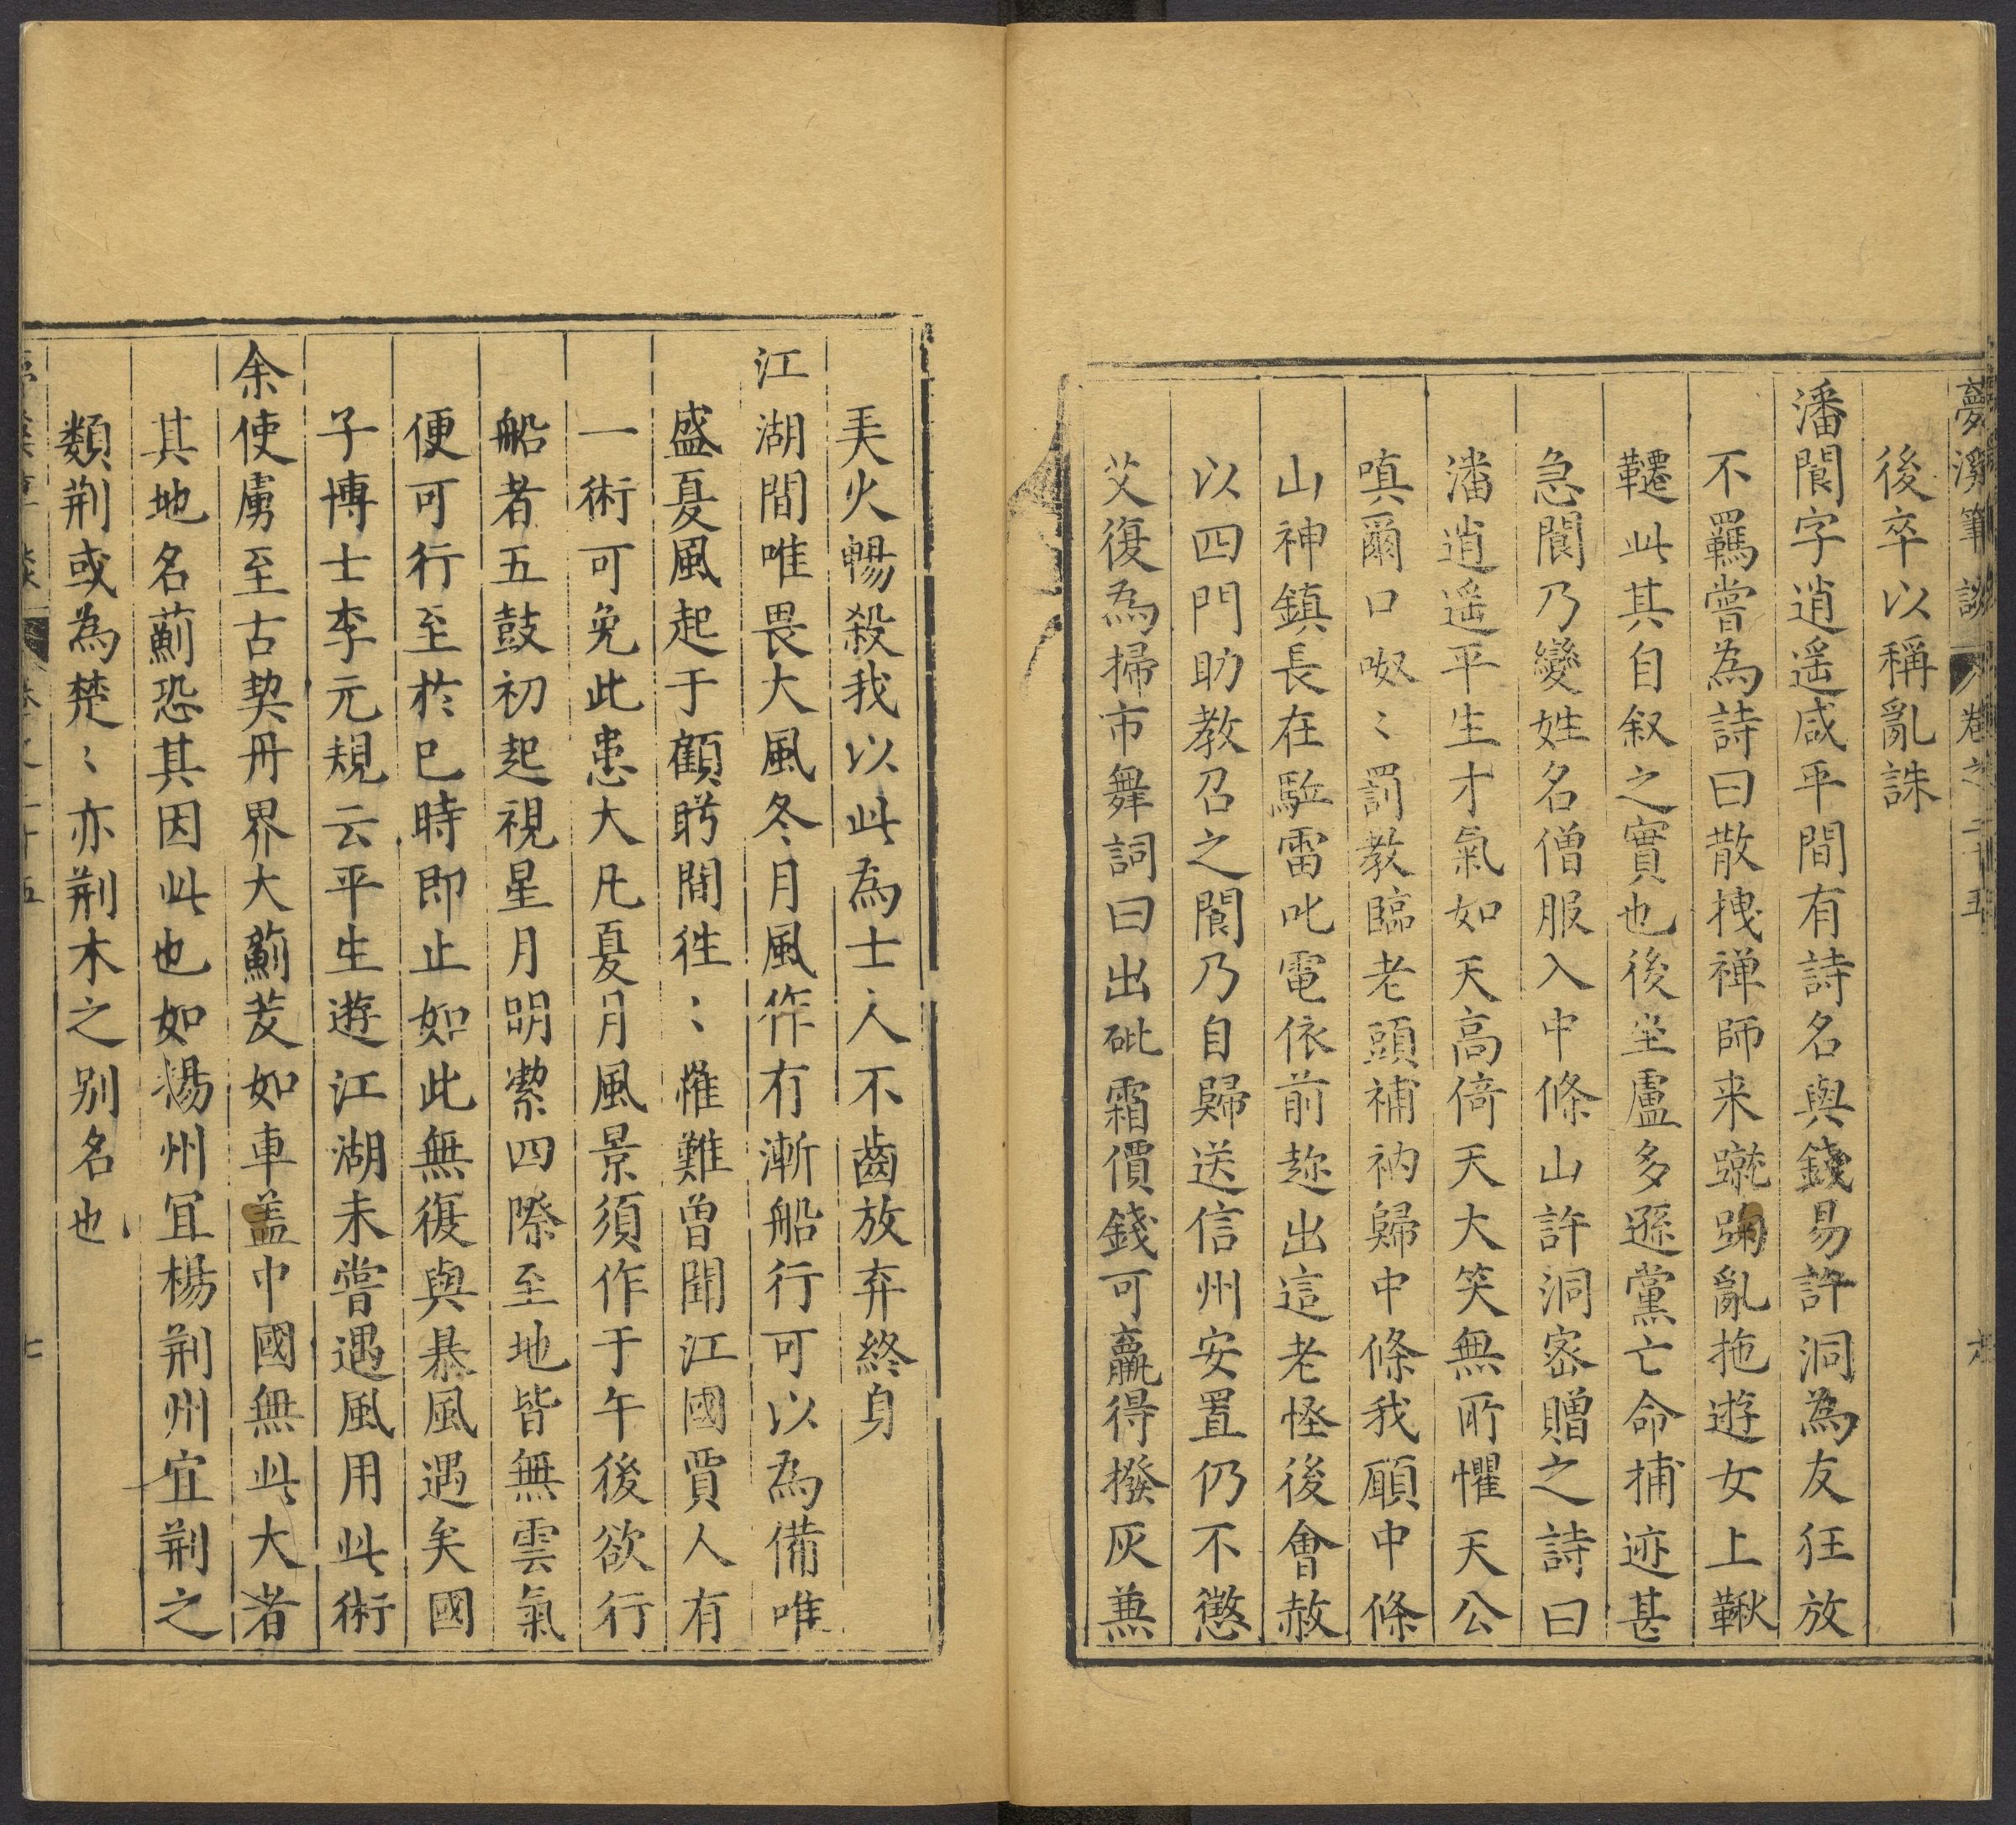 夢溪筆談 卷之二十五
後卒以稱亂誅
潘閬字逍遙咸平間有詩名與錢易許洞為友狂放
不羈嘗為詩曰散拽禅師来蹴踘亂拖遊女上鞦
韆此其自叙之實也後坐盧多遜黨亡命捕迹甚
急閬乃變姓名僧服入中條山許洞宻贈之詩曰
潘逍遙平生才氣如天高倚天大笑無所懼天公
嗔爾口呶〻罰教臨老頭補衲歸中條我願中條
山神鎮長在驅雷叱電依前趂出這老怪後會赦
以四門助教召之閬乃自歸送信州安置仍不懲
艾復為掃市舞詞曰出砒霜價錢可贏得撥灰兼
美火暢殺我以此為士人不齒放弃終身
江湖間唯畏大風冬月風作有漸船行可以為備唯
盛夏風起于顧盻間徃〻罹難曽聞江國賈人有
一術可免此患大凡夏月風景須作于午後欲行
船者五鼓初起視星月明潔四際至地皆無雲氣
便可行至於巳時即止如此無復與暴風遇矣國
子博士李元規云平生遊江湖未嘗遇風用此術
余使虜至古契丹界大薊茇如車盖中國無此大者
其地名薊恐其因此也如楊州宜楊荆州宜荆之
類荆或為楚〻亦荆木之别名也
七